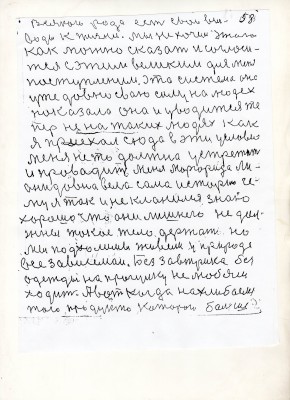 58
всякого рода ест свои вы-
воды к жизни. мы не хочим этого
как можно сказат и согласи-
тся с этим великим для меня
поступлении, эта система она
уже давно свою силу на людех
показала она и уводится те
пер не на таких людях как
я приехал сюда в эти условия
меня нето должна устрет
и проводит меня Маргарита Ли-
анидовна вела сама историю че-
му я так и не кланился знаю
хорошо что они лишнего не дол-
жны такое тело держат но
мы подходим живем у природе
все зависимаи. Без завтрика без
одежды на прогулку не любяли
ходит. А вот когда нахлибаеш
того продукта которого больше